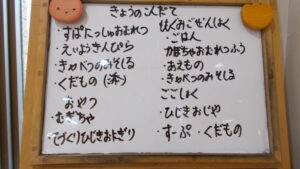 きょうのこんだて
・すぱにっしゅおむれつ
・えいようきんぴら
・きゃべつのみそしる
・くだもの
おやつ
・むぎちゃ
・てづくりひじきおにぎり
・ごはん
・かぼちゃおむれつふう
・あえもの
・きゃべつのみそしる
ごごしょく
・ひじきおじや
・すーぷ ・くだもの